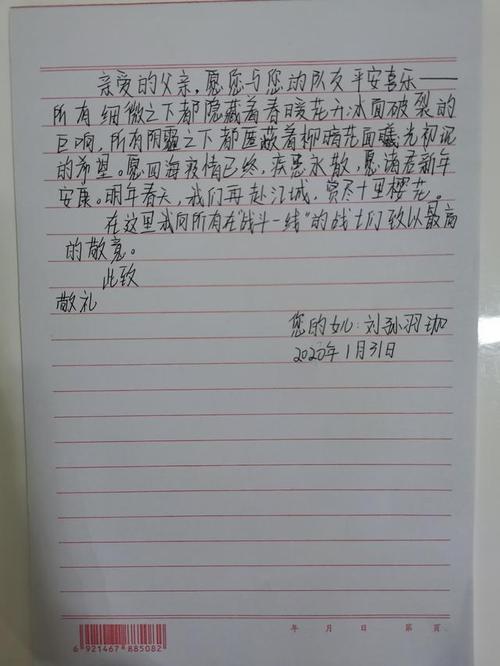 亲爱的父亲，愿您与您的队友平安喜乐——
所有细微之下都隐藏着春暖花开冰面破裂的
巨响，所有阴霾之下都匿蔽着柳暗花面曦光初现
的希望。愿四海疫情已终，疾患永散，愿诸君新年
安康。明年春天，我们再赴江城，赏尽十里樱花。
在这里我向所有在“战斗一线”的战士们致以最高
的敬意。
此致
敬礼
您的女儿：刘孙羽珈
2020年1月31日
年 月 日 第 页
6 921467 885082